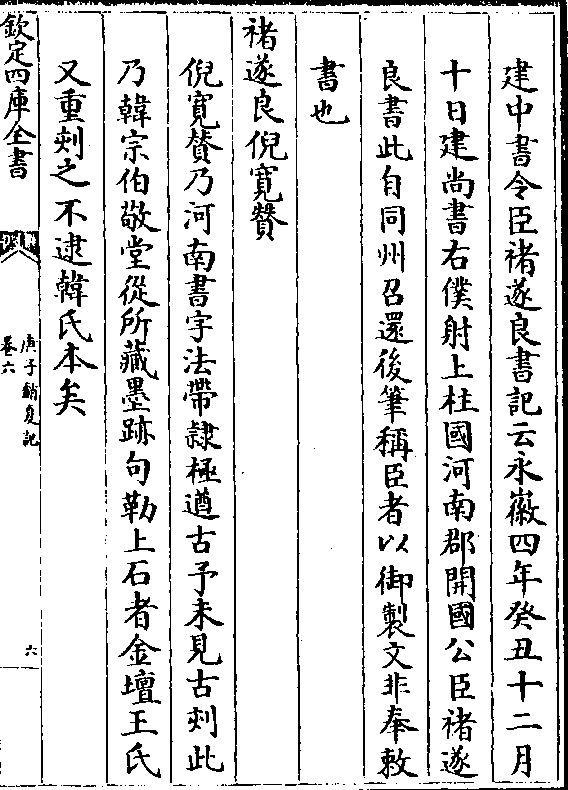 建中書令臣褚遂良書記云永徽四年癸丑十二月
十日建尚書右僕射上柱國河南郡開國公臣褚遂
良書此自同州召還後筆稱臣者以御製文非奉敕
書也
褚遂良倪寛贊
倪寛贊乃河南書字法帶𨽻極遒古予未見古刻此
乃韓宗伯敬堂從所藏墨跡句勒上石者金壇王氏
又重刻之不逮韓氏本矣
欽定四庫全書
庚子銷夏記
卷六
六